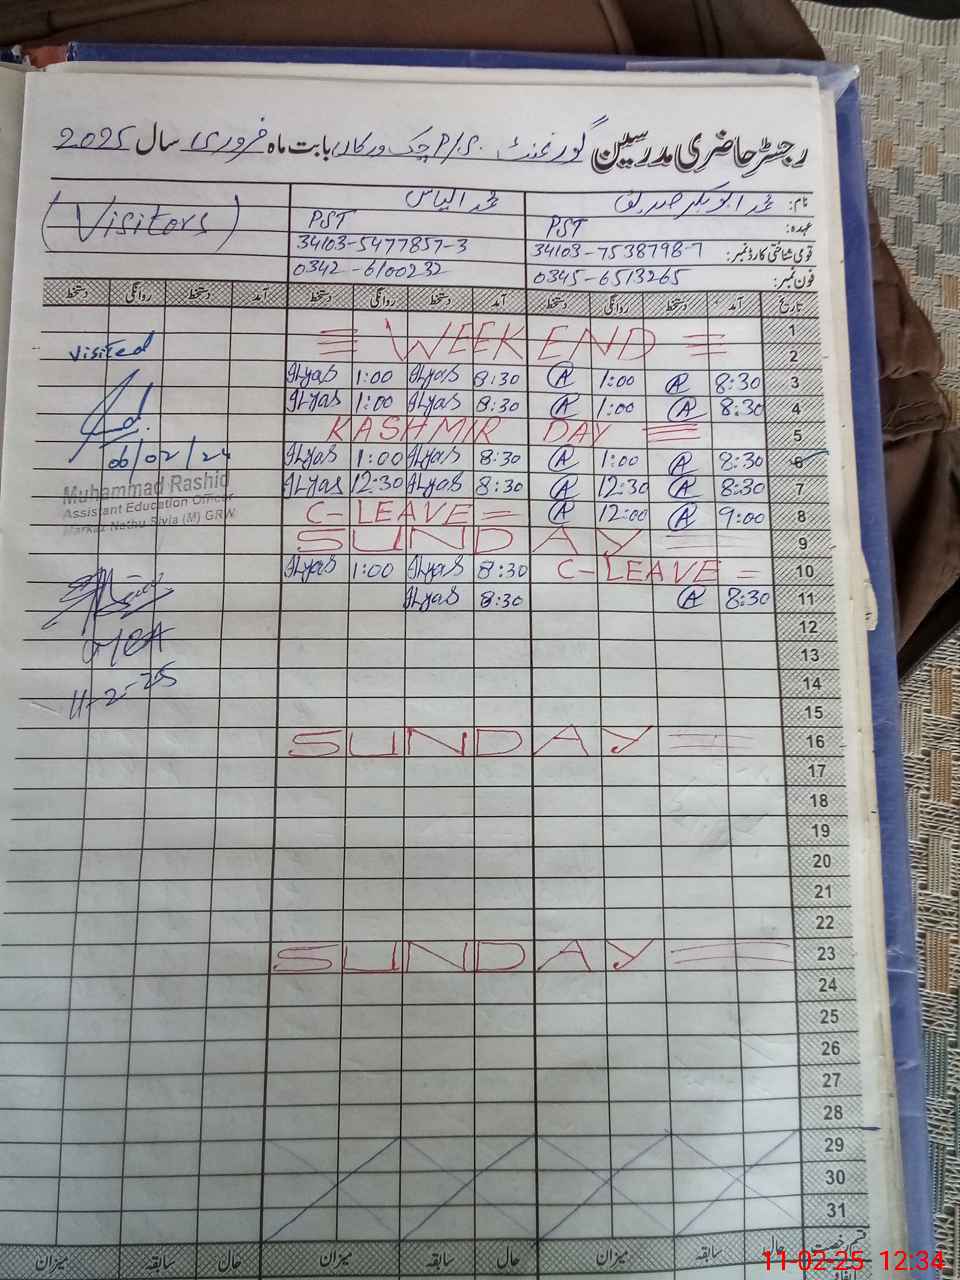 رجسٹر حاضری مدرسین گورنمنٹ P/S. چک ورکاں بابت ماہ فروری سال 2025
نام: محمد ابوبکر صدیق محمد الیاس (Visitors)
عہدہ: PST PST
قومی شناختی کارڈ نمبر: 34103-7538798-7 34103-5477857-3
فون نمبر: 0345-6513265 0342-6100232
تاریخ آمد دستخط روانگی دستخط آمد دستخط روانگی دستخط آمد دستخط روانگی دستخط
1
WEEK END
2
visited
3 8:30 A 1:00 A 8:30 ILyas 1:00 ILyas
4 8:30 A 1:00 A 8:30 ILyas 1:00 ILyas
5 KASHMIR DAY
6 8:30 A 1:00 A 8:30 ILyas 1:00 ILyas
06/02/24
7 8:30 A 12:30 A 8:30 ILyas 12:30 ILyas
Muhammad Rashid
Assistant Education Officer
Markaz Nathu Sivia (M) GRW
8 9:00 A 12:00 A C-LEAVE
9 SUNDAY
10 C-LEAVE 8:30 ILyas 1:00 ILyas
11 8:30 A 8:30 ILyas
12
13
14
11-2-25
15
16 SUNDAY
17
18
19
20
21
22
23 SUNDAY
24
25
26
27
28
29
30
31
قسم رخصت حال سابقہ میزان حال سابقہ میزان حال سابقہ میزان
11-02-25 12:34